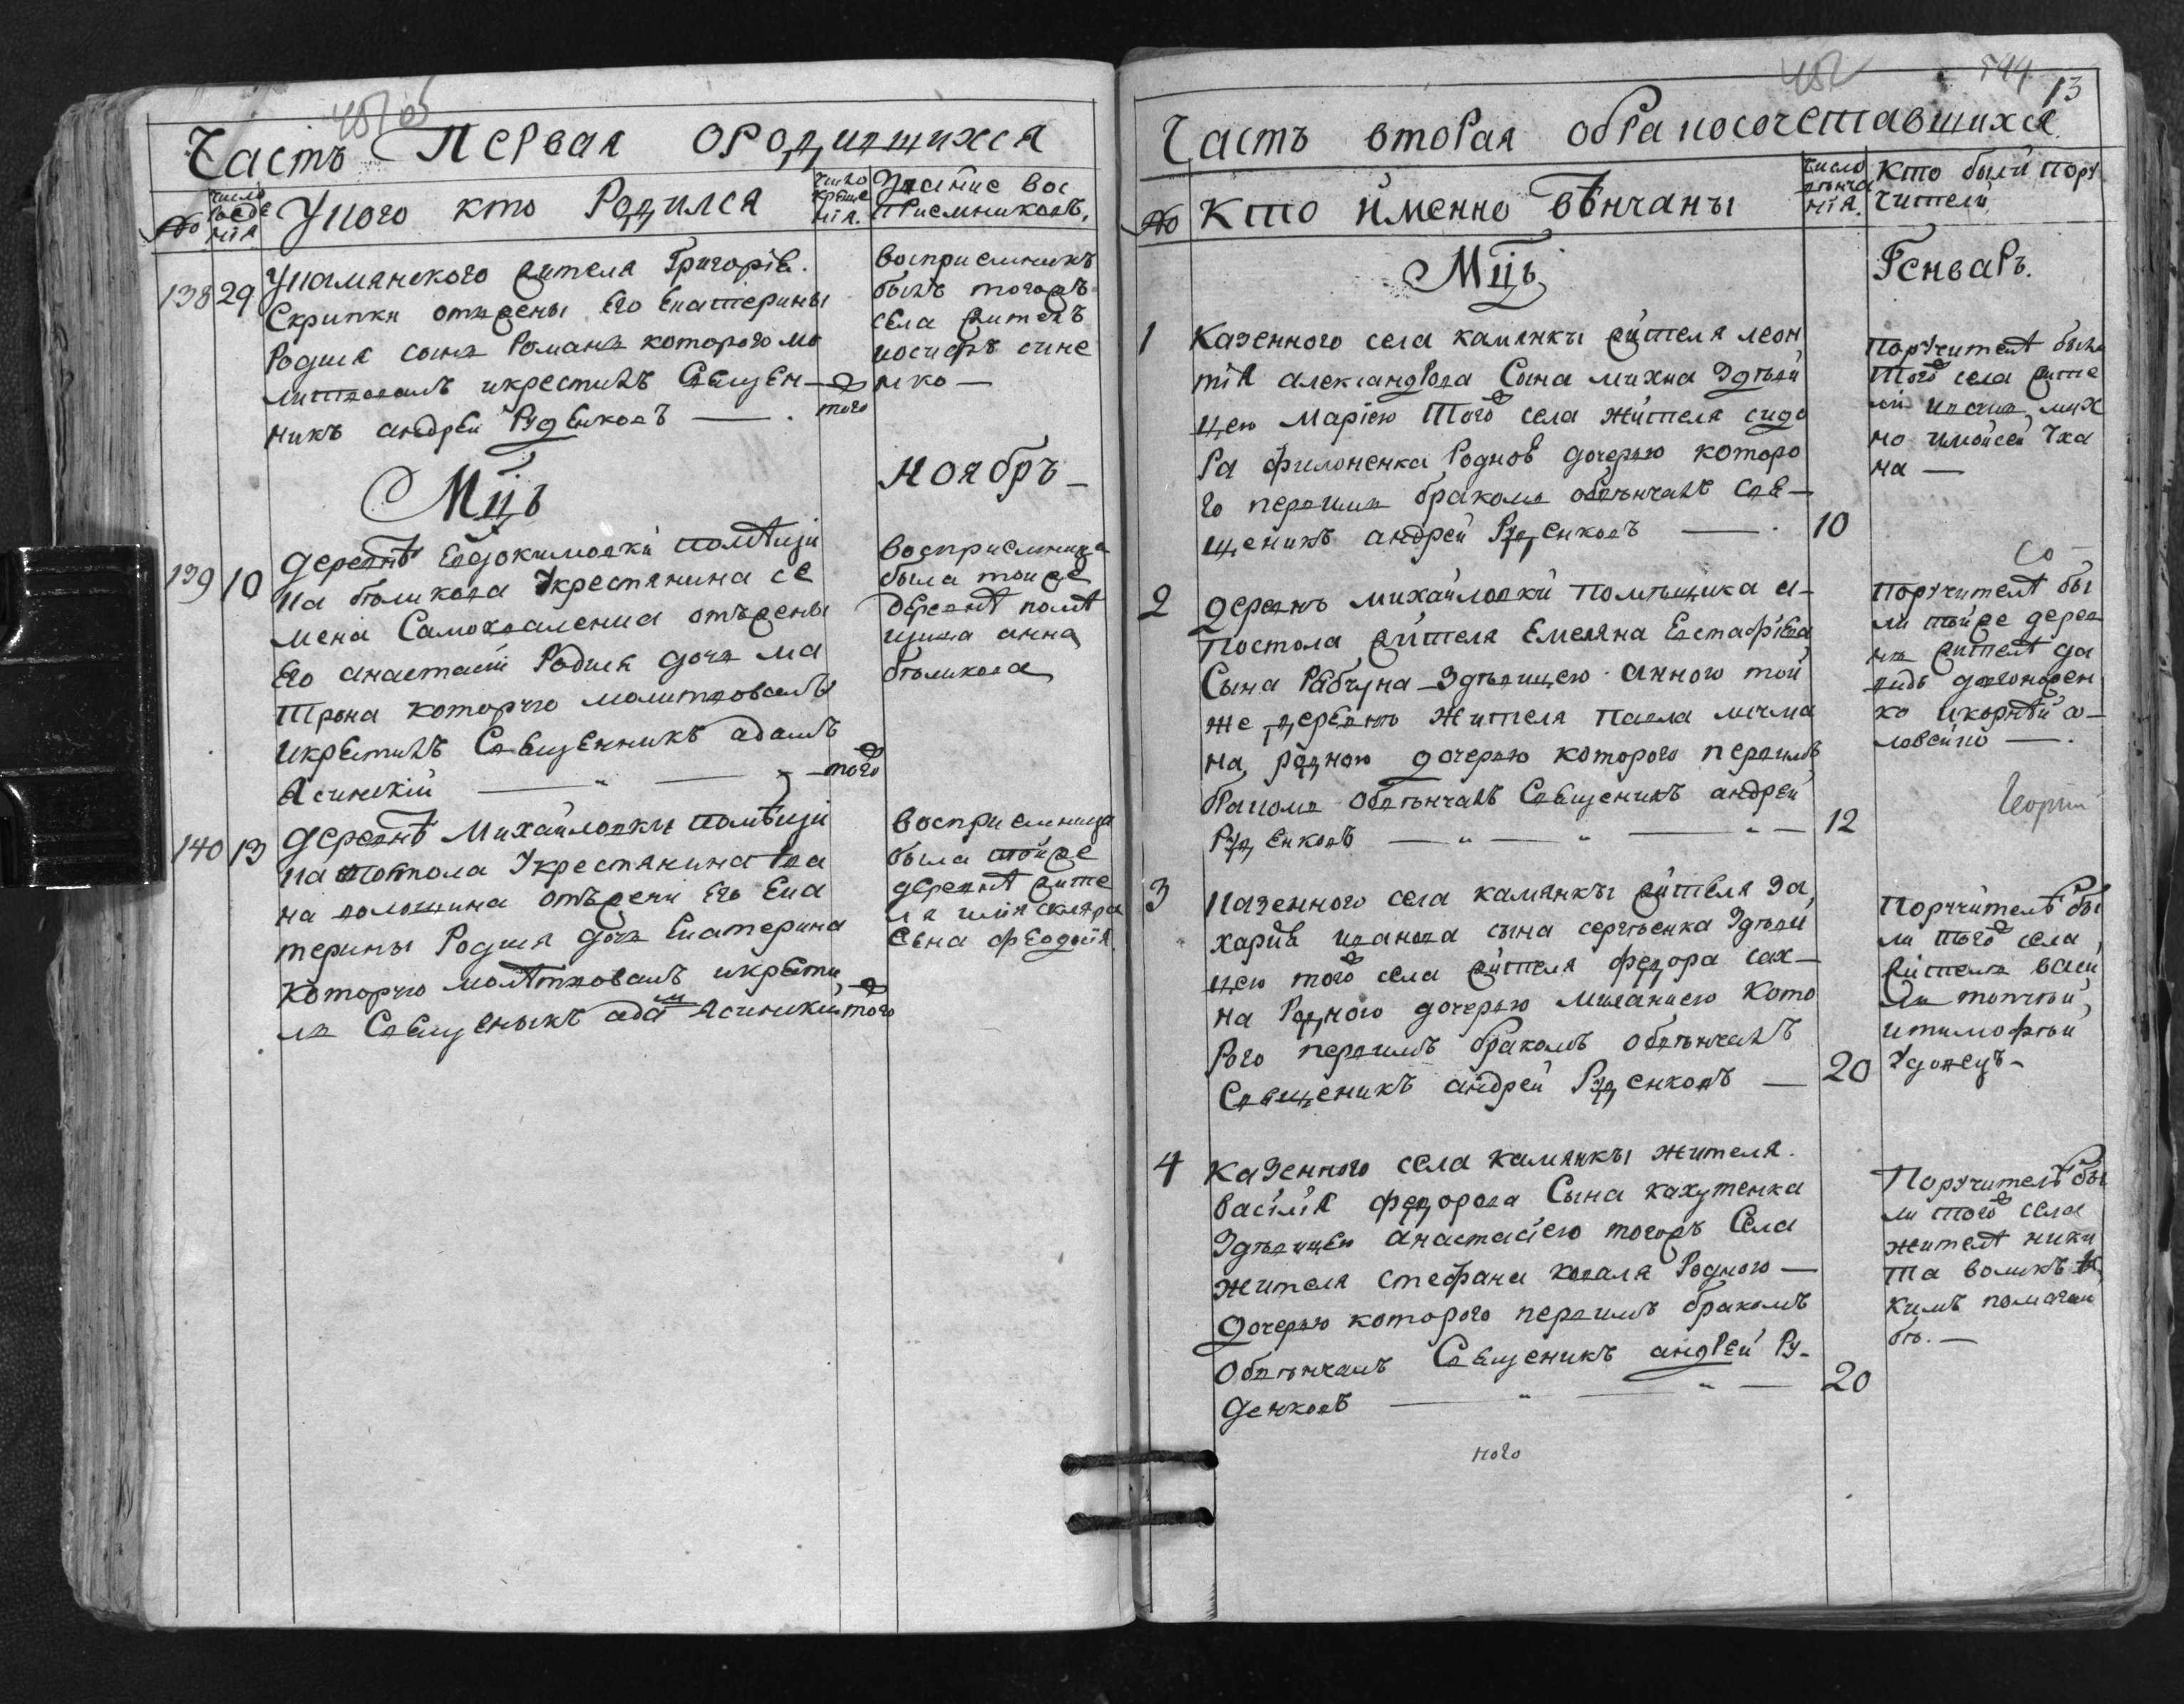 Часть Первая ородившихся
№
число рожде нїя
Укого кто Родился
число креще нїя.
Званїе вос приемниковъ,
138 29
Укамянского жителя Григорїя.
Скрипки отжены Его Екатерины
Родился сынъ Романъ которого мо
литвовалъ икрестилъ Священ—
никъ андрей Руденковъ — . того
воспрïемникъ
былъ тогожъ
села житель
иосифъ сине
нко —
Мцъ ноябръ —
139 10
деревнѣ Евдокимовки помѣщи
ка бѣликова Укрестянина се
мена Самохваленка отъжены
Его анастасїи Родилсь дочь ма
трона которую молитвовалъ
икрестилъ Священникъ адамъ
Ясинскїй — " — " — того
восприемница
была тоиже
деревнѣ помѣ
щица анна
бѣликова
140 13
деревнѣ Михайловки помѣщи
ка апостола Укрестянина Iва
на волошина отъжени Его Ека
терины Родился дочь Екатерина
которую молѣтвовалъ икрести
лъ Священыкъ адамъ Ясинскїй того
восприемница
была тойже
деревнѣ жите
ля илїи скляра
жена феодосїя
13
Часть вторая обракосочетавшихся
№
Кто именно вѣнчаны
число вѣнча нїя.
Кто были пору чители
Мцъ Генварь.
1 Казенного села камянкы жителя леон
тїя александрова Сына михна Здѣви
цею Марїею того села жителя сидо
ра филоненка Роднов дочерью которо
го первимъ бракомъ обвѣнчалъ Свя—
щеникъ андрей Руденковъ — . 10
Поручителѣ были
того села жите
ли
мих
но имойсей Чха
на —
2 деревнъ михайловкй помѣщика а—
постола жителя Емеляна Евстафїева
Сына Рябчуна Здѣвицею анною той
же деревнѣ жителя павла
на, родною дочерью которого первимъ
бракомъ обвѣнчалъ Священикъ андрей
Руденковъ — " — " — " — 12
Со—
Поручителѣ бы
ли тойже дерев
нѣ жителѣ да
видъ
ко икорнѣй со—
ловейко — .
3 Казенного села камянкы жителя За,
харїя иванова сына сергѣенка Здѣви
цею того села жителя федора сах—
на Родного дочерью миланиею Кото
рого первимъ бракомъ обвѣнчалъ
Священикъ андрей Руденковъ — 20
Поручителѣ бы
ли того села,
жителѣ васи,
ли
итимофѣй
Удовецъ—
4 Казенного села камянкы жителя.
василїя федорова Сына кахутенка
Здѣвицею анастасїею тогожъ Села
жителя Стефана коваля Родного —
дочерью которого первимъ бракомъ
Обвѣнчалъ Священикъ андрей Ру—
денковъ — " — " — 20
Поручителѣ бы
ли того села
жителѣ ники
та воликъ
кимъ
ного